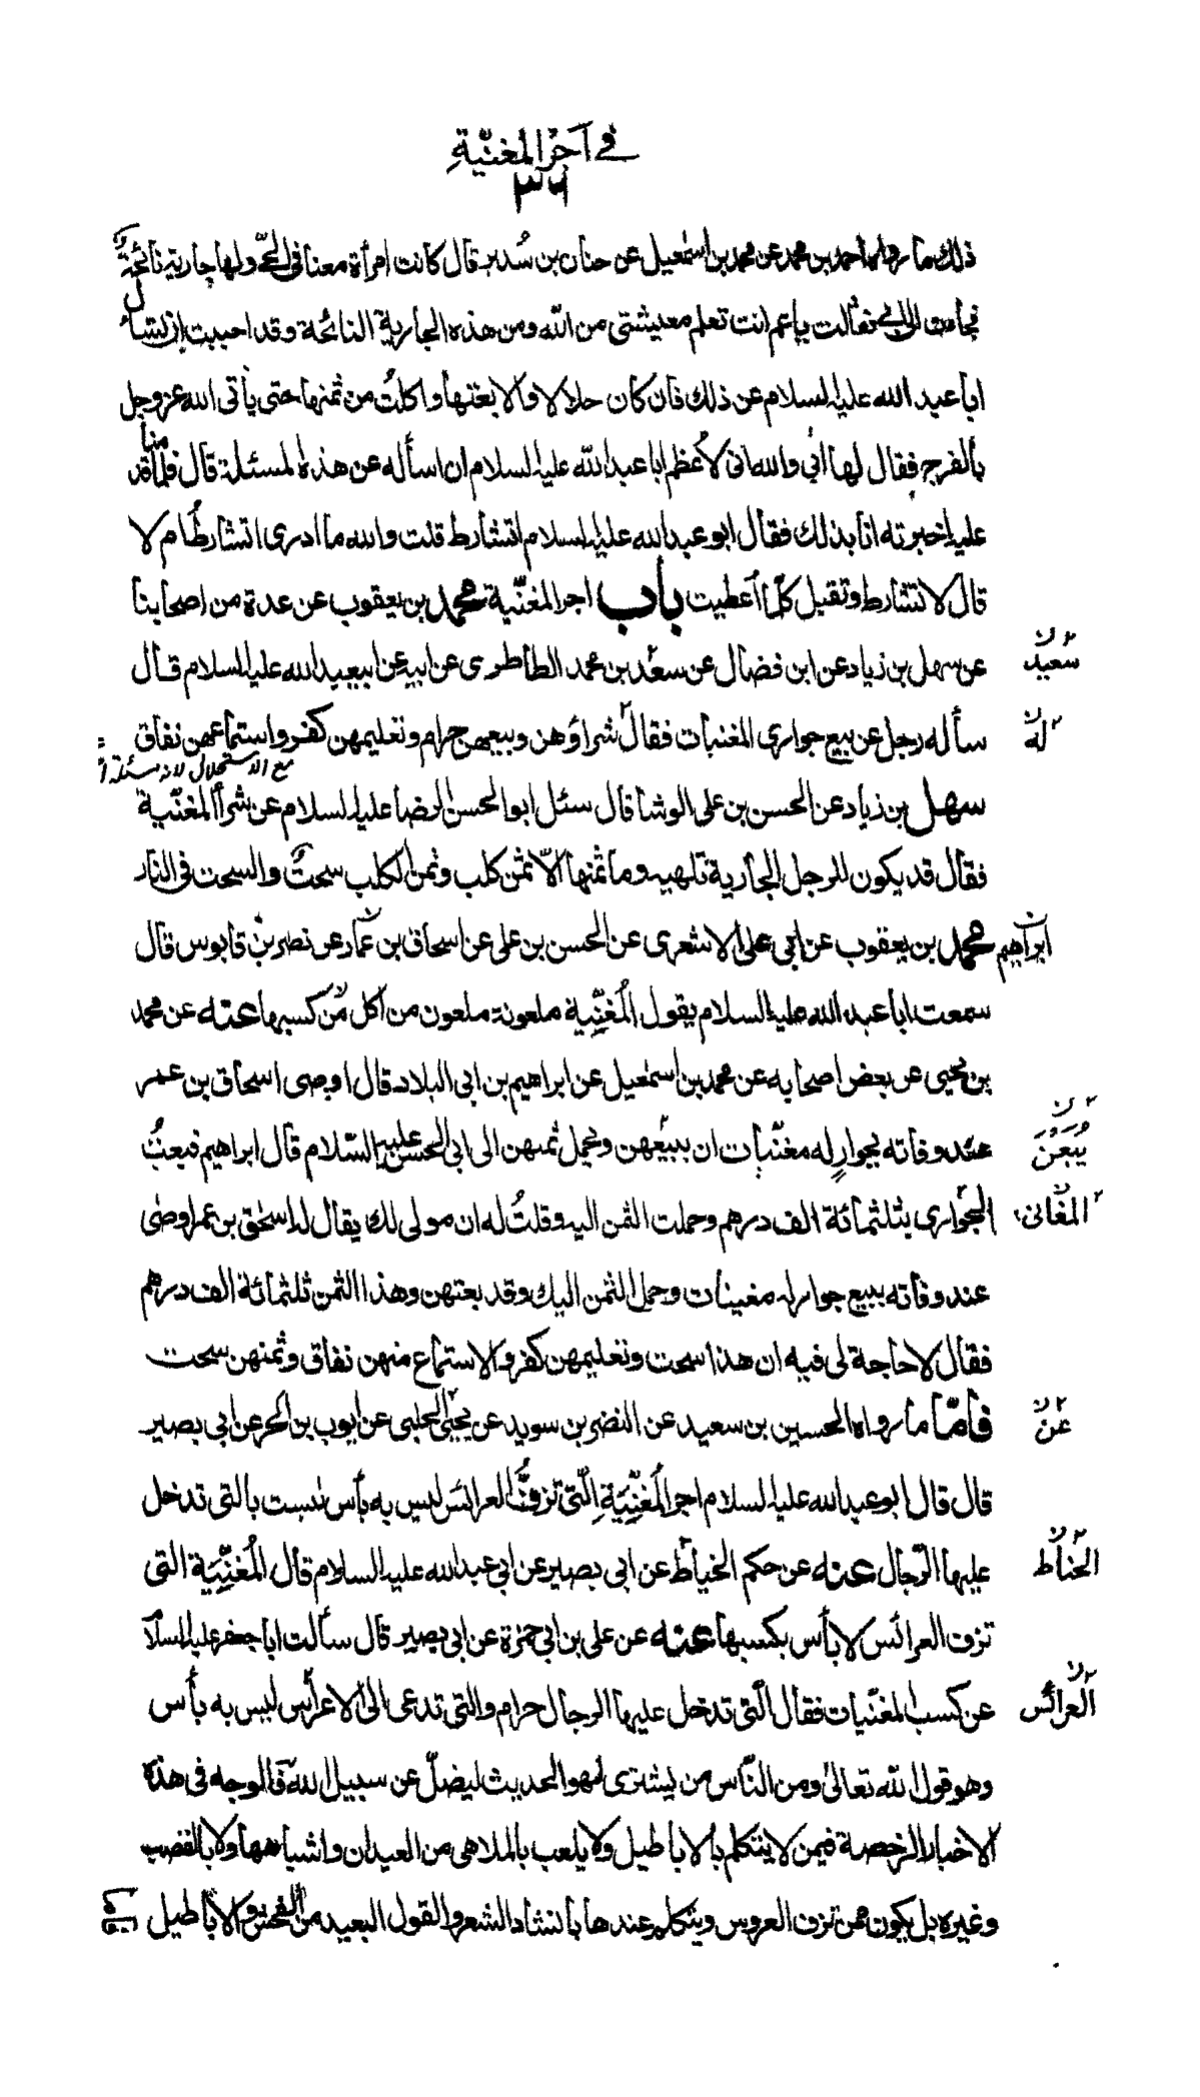 في أجر المغنية
٣٦
ذلك ما رواه احمد بن محمد عن محمد بن اسمعيل عن حنان بن سُدير قال كانت امرأة معنا فى الحىّ ولها جارية نائحة
فجاءت الى ابى فقالت يا عم انت تعلم معيشتى من الله ومن هذه الجارية النائحة وقد احببت ان تسأل
ابا عبد الله عليه السلام عن ذلك فان كان حلالا والا بعتها واكلتُ من ثمنها حتى يأتى الله عز وجل
بالفرج فقال لها ابى والله انى لأعظم ابا عبد الله عليه السلام ان اسأله عن هذه المسئلة قال فلما قدمنا
عليه اخبرته انا بذلك فقال ابو عبد الله عليه السلام اتشارط قلت والله ما ادرى اتشارط أم لا
قال لا تشارط وتقبل كلّما أعطيت باب اجر المغنّية محمد بن يعقوب عن عدة من اصحابنا
عن سهل بن زياد عن ابن فضال عن سعد بن محمد الطاطرى عن ابيه عن ابيعبد الله عليه السلام قال
سعيد
سأله رجل عن بيع جوارى المغنيات فقال شراؤهن وبيعهن حرام وتعليمهن كفر واستماعهن نفاق
له
مع الاستحلال لانه مسئلة
سهل بن زياد عن الحسن بن على الوشا قال سئل ابو الحسن الرضا عليه السلام عن شرأ المغنّية
فقال قد يكون للرجل الجارية تلهيه وما ثمنها الّا ثمن كلب وثمن الكلب سحتٌ والسحت فى النار
محمد بن يعقوب عن ابى على الاشعرى عن الحسن بن على عن اسحاق بن عمار عن نصر بن قابوس قال
ابراهيم
سمعت ابا عبد الله عليه السلام يقول المُغنِّية ملعونة ملعون من اكل من كسبها عنه عن محمد
بن يحيى عن بعض اصحابه عن محمد بن اسمعيل عن ابراهيم بن ابى البلاد قال اوصى اسحاق بن عمر
عند وفاته بجوارٍ له مغنّيات ان يبيعهن ونحمل ثمنهن الى ابى الحسن عليه السّلام قال ابراهيم فبعتُ
يبعن
الجوارى بثلثمائة الف درهم وحملت الثمن اليه وقلتُ له ان مولى لك يقال له اسحٰق بن عمر اوصٰى
المغانى
عند وفاته ببيع جوار له مغينات وحمل الثمن اليك وقد بعتهن وهذا الثمن ثلثمائة الف درهم
فقال لا حاجة لى فيه ان هذا سحت وتعليمهن كفر والاستماع منهن نفاق وثمنهن سحت
فأمّا ما رواه الحسين بن سعيد عن النضر بن سويد عن يحيى الحلبى عن ايوب بن الحر عن ابى بصير
عن
قال قال ابو عبد الله عليه السلام اجر المُغنِّيَةِ الّتى تزفّ العرائس ليس به بأس ليست بالتى تدخل
عليها الرّجال عنه عن حكم الخياط عن ابى بصير عن ابى عبد الله عليه السلام قال المُغنِّيَة التى
الحناط
تزف العرائس لا بأس بكسبها عنه عن على بن ابى حمزة عن ابى بصير قال سألت ابا جعفر عليه السلام
عن كسب المغنّيات فقال الّتى تدخل عليها الرجال حرام والتى تدعى الى الاعراس ليس به بأس
العرائس
وهو قول الله تعالىٰ ومن النّاس من يشترى لهو الحديث ليضلّ عن سبيل الله فالوجه فى هذه
الاخبار الرخصة فيمن لا يتكلم بالاباطيل ولا يلعب بالملاهى من العيدان واشباهها ولا بالقصب
وغيره بل يكون ممن تزف العروس ويتكلم عندها بانشاد الشعر والقول البعيد من الفحش والاباطيل